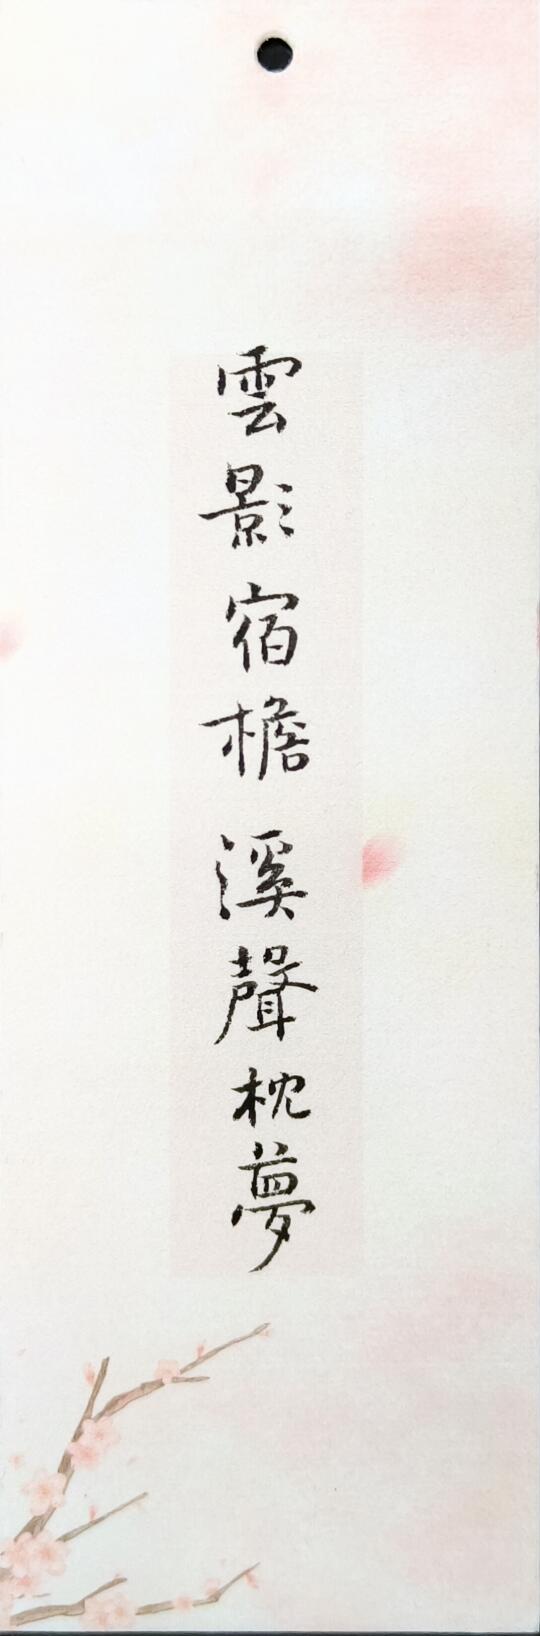 雲影宿檐溪聲枕夢